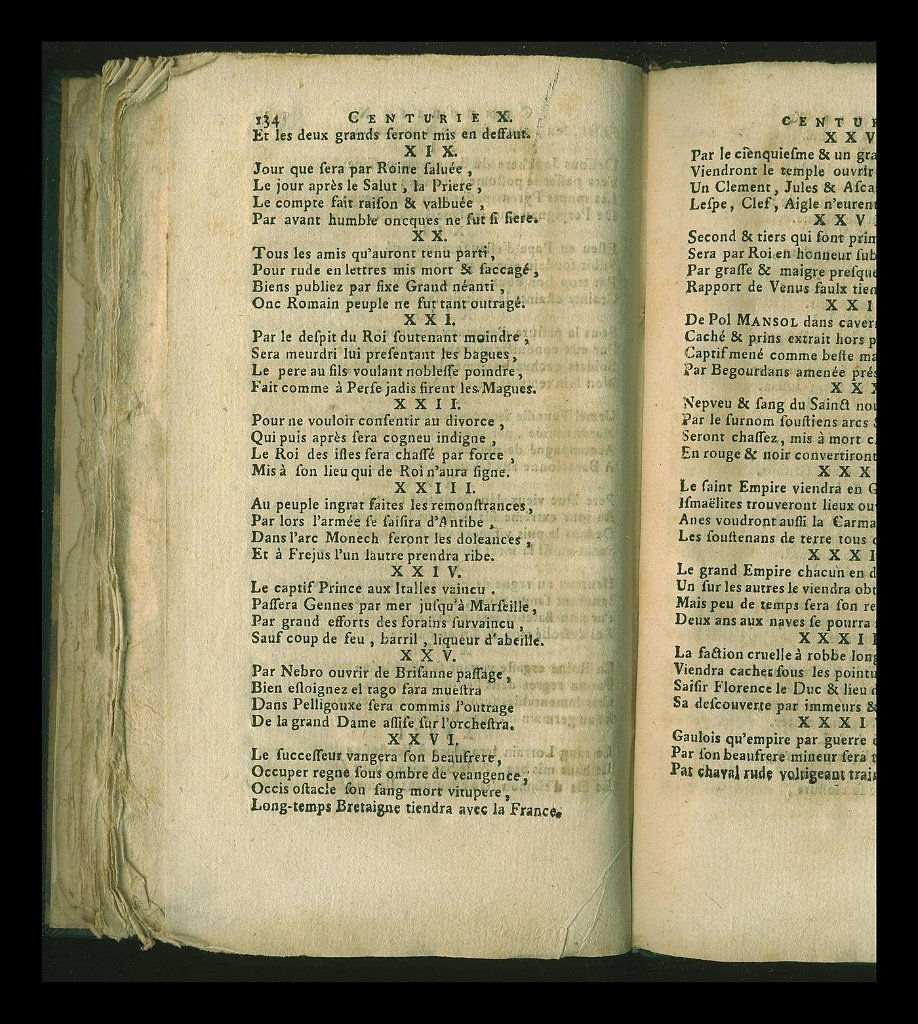 134 CENTURIE X.
Et les deux grands ſeront mis en deffaut.
XIX.
Jour que ſera par Roine ſaluée ,
Le jour après le Salut , la Priere ,
Le compte fait raiſon & valbuée ,
Par avant humble oncques ne fut ſi fiere.
XX.
Tous les amis qu'auront tenu parti ,
Pour rude en lettres mis mort & ſaccagé ,
Biens publiez par fixe Grand néanti ,
Onc Romain peuple ne fut tant outragé.
XXI.
Par le deſpit du Roi ſoutenant moindre ,
Sera meurdri lui preſentant les bagues ,
Le pere au fils voulant nobleſſe poindre ,
Fait comme à Perſe jadis firent les Magues.
XXII.
Pour ne vouloir conſentir au divorce ,
Qui puis après ſera cogneu indigne ,
Le Roi des iſles ſera chaſſé par force ,
Mis à ſon lieu qui de Roi n'aura ſigne.
XXIII.
Au peuple ingrat faites les remonſtrances ,
Par lors l'armée ſe ſaiſira d'Antibe ,
Dans l'arc Monech feront les doleances ,
Et à Frejus l'un lautre prendra ribe.
XXIV.
Le captif Prince aux Italles vaincu .
Paſſera Gennes par mer juſqu'à Marſeille ,
Par grand efforts des forains ſurvaincu ,
Sauf coup de feu , barril , liqueur d'abeille.
XXV.
Par Nebro ouvrir de Briſanne paſſage ,
Bien eſloignez el tago fara mueſtra
Dans Pelligouxe ſera commis l'outrage
De la grand Dame aſſiſe ſur l'orcheſtra.
XXVI.
Le ſucceſſeur vangera ſon beaufrere ,
Occuper regne ſous ombre de veangence ,
Occis oſtacle ſon ſang mort vitupere ,
Long-temps Bretaigne tiendra avec la France.
CENTU
XXV
Par le cienquieſme & un
Viendront le temple ouvrir
Un Clement , Jules &
Leſpe , Clef , Aigle
XXV
Second & tiers qui font
Sera par Roi en honneur
Par graſſe & maigre preſque
Rapport de Venus faulx
XXI
De Pol MANSOL dans
Caché & prins extrait hors
Captif mené comme beſte
Par Begourdans amenée
XXX
Nepveu & ſang du Sainct
Par le ſurnom ſouſtiens arcs
Seront chaſſez , mis à mort
En rouge & noir convertiront
XXX
Le ſaint Empire viendra en
Iſmaëlites trouveront lieux
Anes voudront auſſi la
Les ſouſtenans de terre tous
XXXI
Le grand Empire chacun en
Un ſur les autres le viendra
Mais peu de temps ſera ſon
Deux ans aux naves ſe pourra
XXXII
La faction cruelle à robbe
Viendra cacher ſous les
Saiſir Florence le Duc & lieu
Sa deſcouverte par immeurs &
XXXI
Gaulois qu'empire par guerre
Par ſon beaufrere mineur ſera
Par chaval rude voltigeant